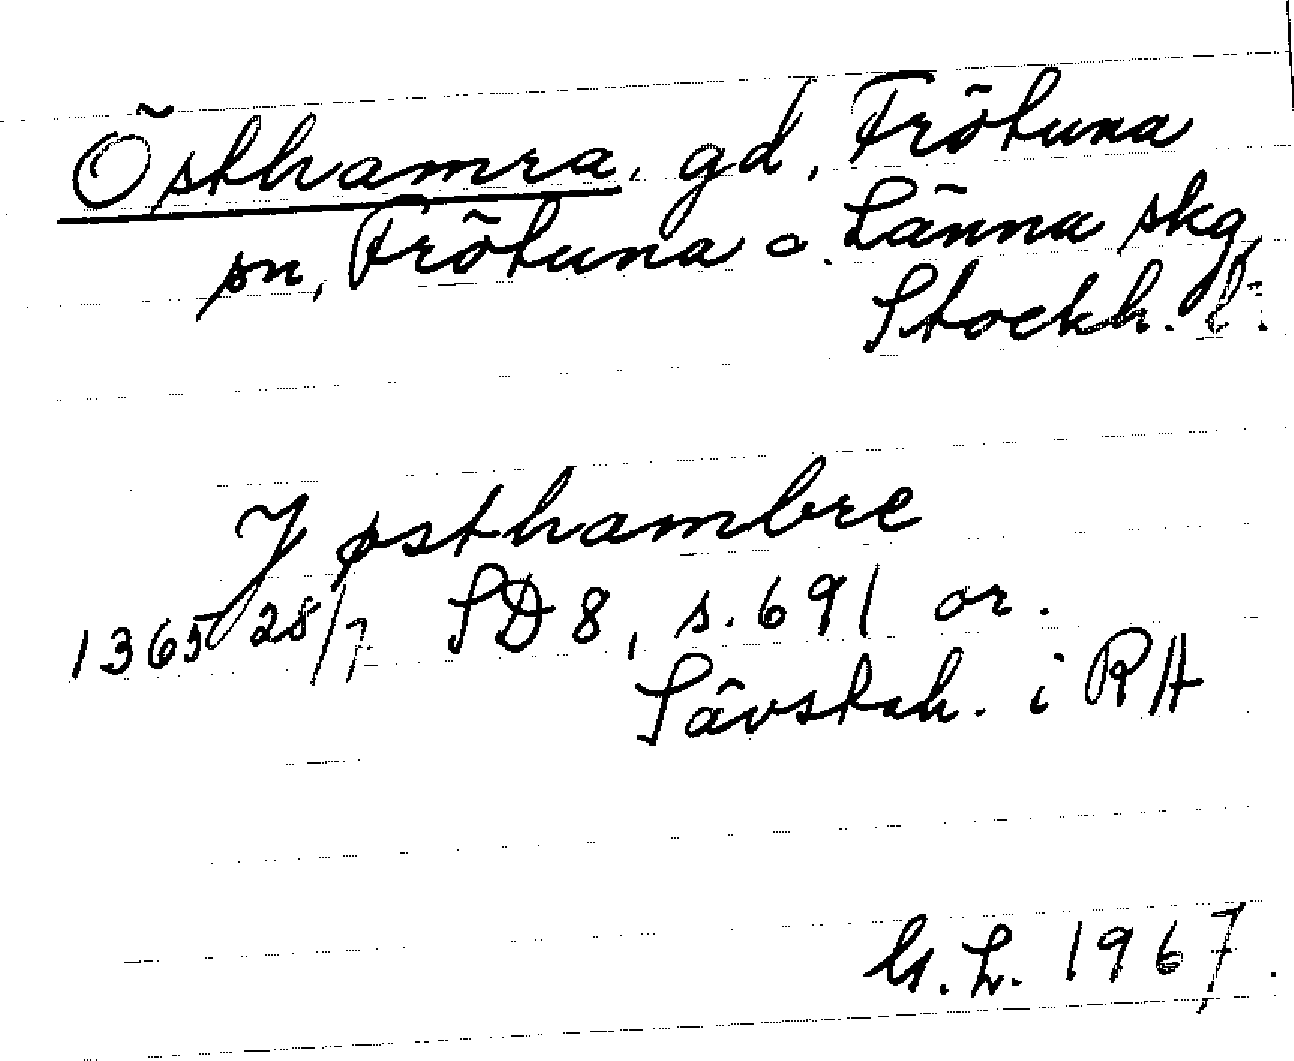 Östhamra, gd, Frötuna
sn, Frötuna o. Länna skg,
Stockh. l.
J østhambre
1365 28/7 SD 8, s. 691 or.
Sävstah. i RA
G. L. 1967.